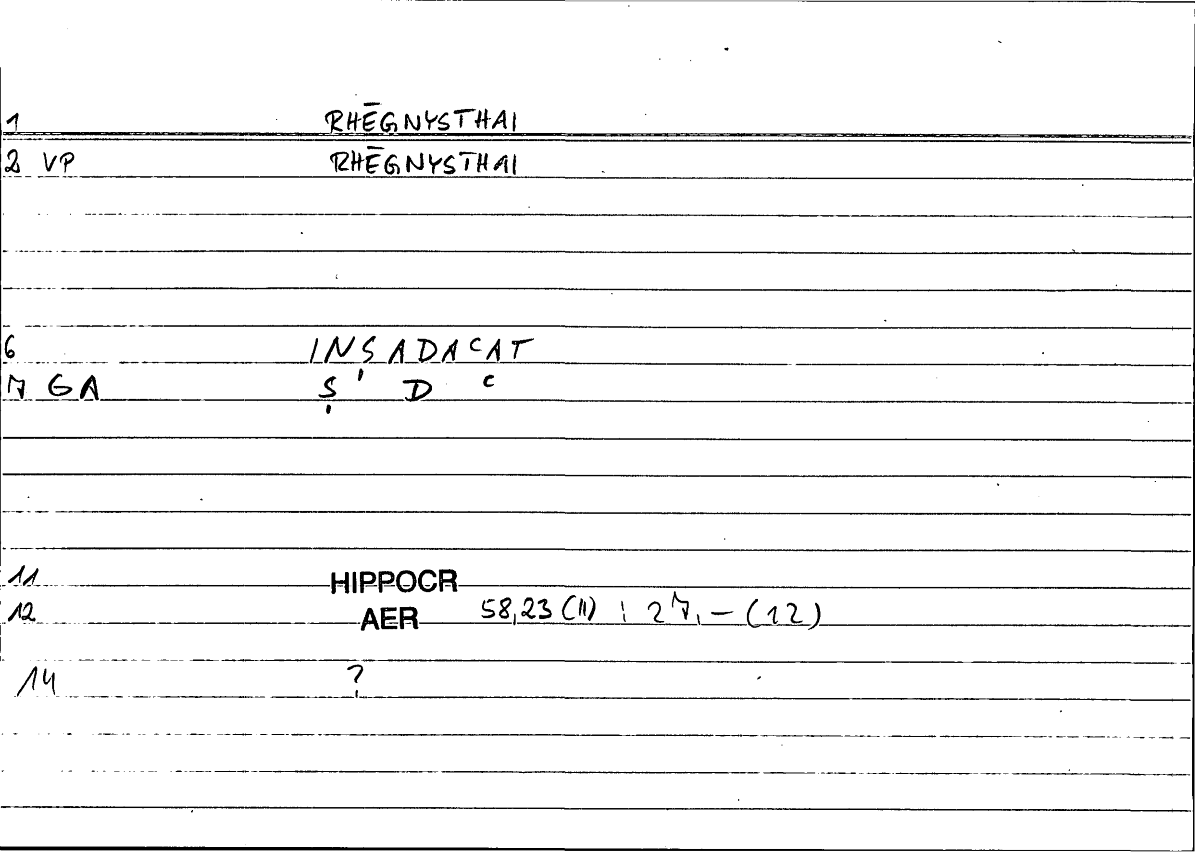 1 RHĒGNYSTHAI
2 VP RHĒGNYSTHAI
6 INṢADAᶜAT
7 GA Ṣ ' D ᶜ
11 HIPPOCR
12 AER 58,23 (11) ; 27, – (12)
14 ?